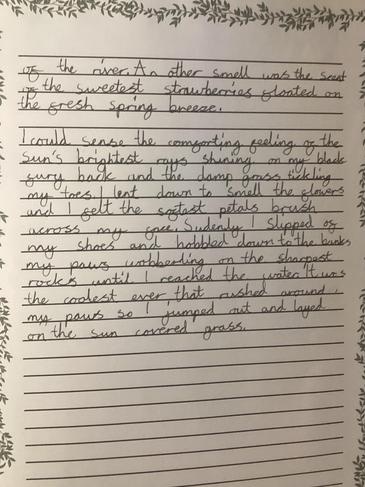 of the river. An other smell was the scent
of the sweetest strawberries floated on
the fresh spring breeze.
I could sense the comforting feeling of the
Sun's brightest rays shining on my black
fury back and the damp grass tickling
my toes. I lent down to smell the flowers
and I felt the softest petals brush
across my face. Sudenly I slipped of
my shoes and hobbled down to the banks
my paws wobbling on the sharpest
rocks until I reached the water. It was
the coolest ever, that rushed around
my paws so I jumped out and layed
on the sun covered grass.